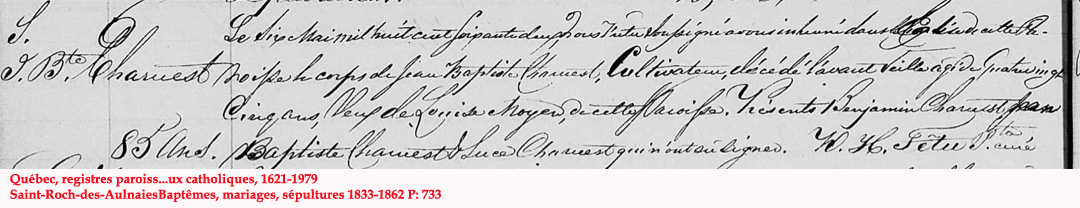 S.
J. Bte Charuest
85 Ans.
Le Six Mai mil huit cent soixante deux, Nous Prêtre Soussigné avons inhumé dans l'Eglise de cette Pa-
roisse le corps de Jean Baptiste Charuest, Cultivateur, décédé l'avant veille agé de Quatre vingt
Cinq ans, Veuf de Louise Moyen, de cette Paroisse. Présents Benjamin Charuest, Jean
Baptiste Charuest & Luce Charuest qui n'ont su signer. H. Têtu Ptre curé
Québec, registres paroiss...ux catholiques, 1621-1979
Saint-Roch-des-AulnaiesBaptêmes, mariages, sépultures 1833-1862 P: 733